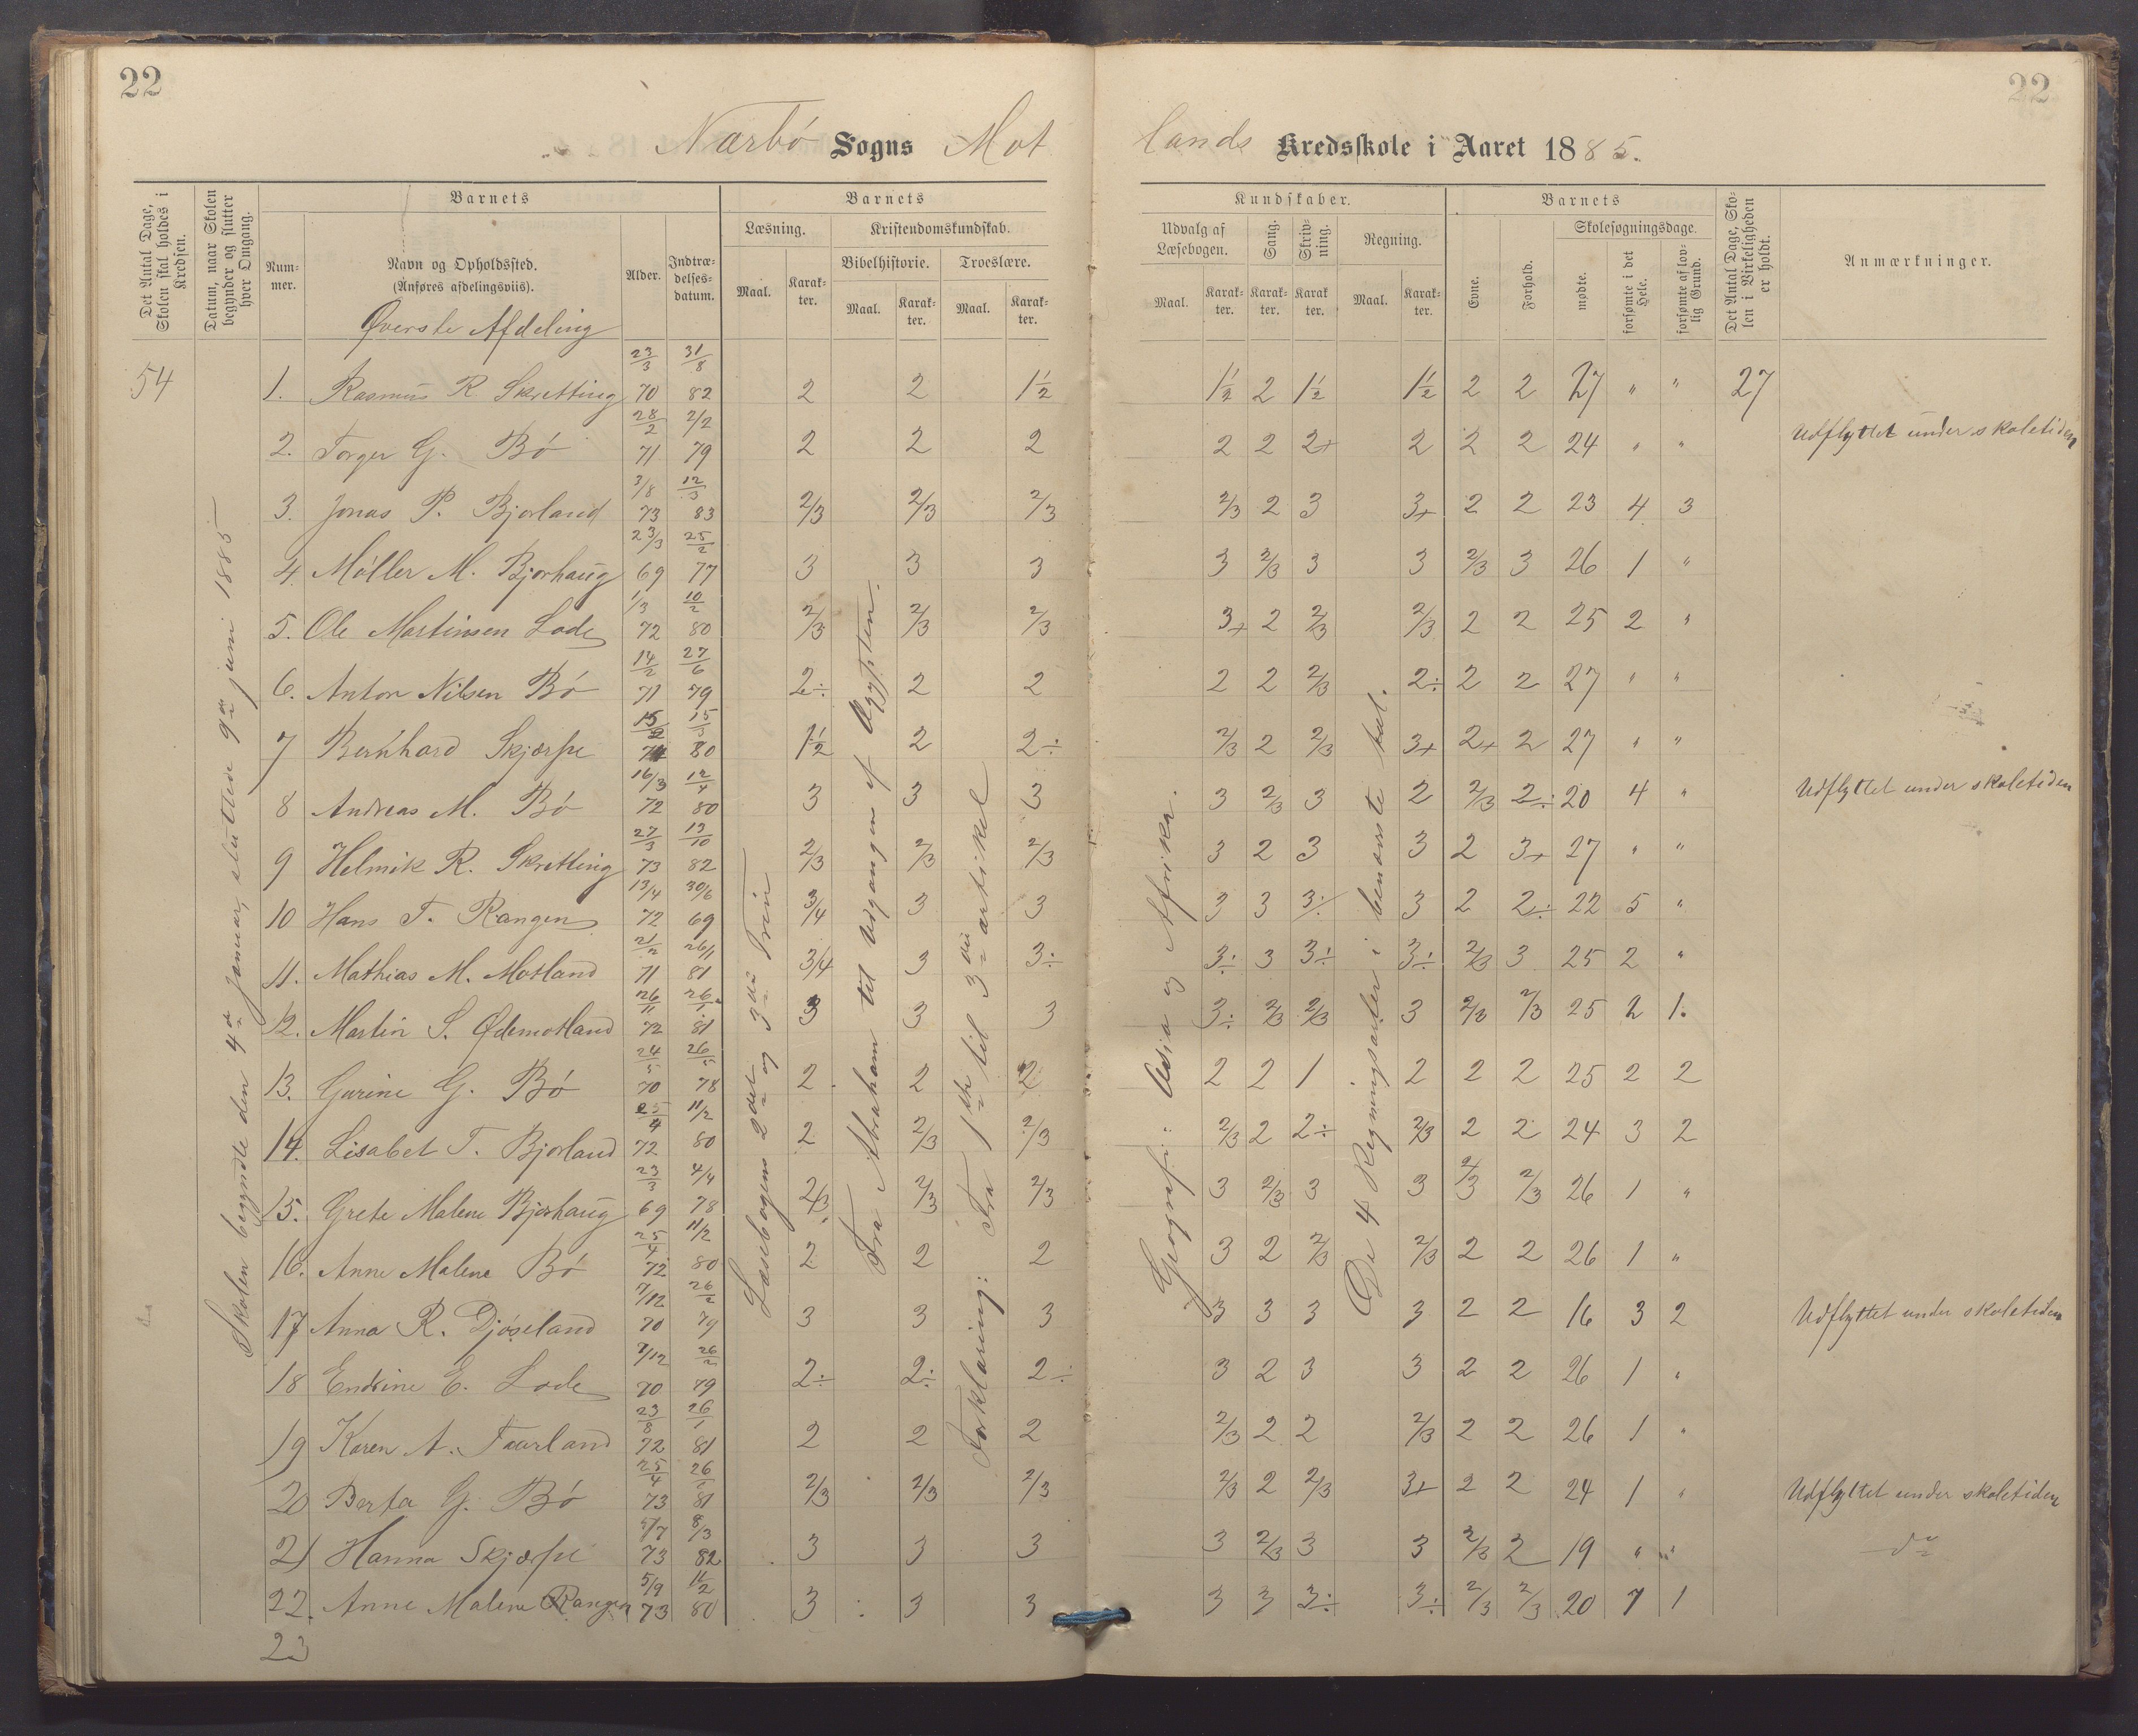 22
22
Nærbø Sogns Mot
lands Kredsskole i Aaret 1885.
Det Antal Dage, Skolen skal holdes i Kredsen.
Datum, naar Skolen begynder og slutter hver Omgang.
Barnets
Nummer.
Navn og Opholdssted.
(Anføres afdelingsviis).
Alder.
Indtrædelsesdatum.
Barnets
Læsning.
Kristendomskundskab.
Bibelhistorie.
Troeslære.
Maal. Karakter. Maal. Karakter. Maal. Karakter.
Kundskaber.
Udvalg af Læsebogen.
Sang.
Skrivning.
Regning.
Maal. Karakter. Karakter. Karakter. Maal. Karakter.
Barnets
Evne.
Forhold.
Skolesøgningsdage.
mødte.
forsømte i det Hele.
forsømte af lovlig Grund.
Det Antal Dage, Skolen i Virkeligheden er holdt.
Anmærkninger.
Øverste Afdeling
54
Skolen begyndte den 4de Januar, sluttede 9de juni 1885
Læsebogens 2det og 3die Trin
Fra Abraham til Udgangen af Ægypten.
Forklaring: Fra 1ste til 3die artikel
Geografi: Asia og Afrika.
De 4 Regningsarter i benævnte tal.
1. Rasmus R. Skretting 23/3 70 31/8 82 2 2 1½ 1½ 2 1½ 1½ 2 2 27 " " 27
2. Torger G. Bø 28/2 71 2/2 79 2 2 2 2 2 2+ 2 2 2 24 " " Udflyttet under skoletiden
3. Jonas P. Bjorland 3/8 73 12/3 83 2/3 2/3 2/3 2/3 2 3 3+ 2 2 23 4 3
4. Møller M. Bjorhaug 23/3 69 25/2 77 3 3 3 3 2/3 3 3 2/3 3 26 1 "
5. Ole Martinsen Lode 1/3 72 10/2 80 2/3 2/3 2/3 3+ 2 2/3 2/3 2 2 25 2 "
6. Anton Nilsen Bø 14/2 71 27/6 79 2÷ 2 2 2 2 2/3 2÷ 2 2 27 " "
7 Bernhard Skjærpe 15/2 15/3 80 1½ 2 2÷ 2/3 2 2/3 3+ 2+ 2 27 " "
8 Andreas M. Bø 16/3 72 12/4 80 3 3 3 3 2/3 3 2 2/3 2÷ 20 4 " Udflyttet under skoletiden
9 Helmik R. Skretting 27/3 73 19/10 82 2/3 2/3 2/3 3 2 3 3 2 3+ 27 " "
10 Hans T. Rangen 13/4 72 30/6 69 3/4 3 3 3 3 3÷ 3 2 2÷ 22 5 "
11. Mathias M. Motland 21/2 71 26/1 81 3/4 3 3÷ 3÷ 3 3÷ 3÷ 2/3 3 25 2 "
12. Martin S. Ødemotland 26/11 72 26/1 81 3 3 3 3÷ 2/3 2/3 3 2/3 2/3 25 2 1.
13. Gurine G. Bø 24/5 70 26/5 78 2 2 2 2 2 1 2 2 2 25 2 2
14. Lisabet T. Bjorland 25/4 72 11/2 80 2 2/3 2/3 2/3 2 2÷ 2/3 2 2 24 3 2
15. Grete Malene Bjorhaug 23/3 69 4/4 78 2/3 2/3 2/3 3 2/3 3 3 2/3 2/3 26 1 "
16. Anne Malene Bø 25/4 72 11/2 80 2 2 2 3 2 2/3 2/3 2 2 26 1 "
17 Anna R. Djøseland 7/12 70 26/2 79 3 3 3 3 3 3 3 2 2 16 3 2 Udflyttet under skoletiden
18 Endrine E. Lode 7/12 70 26/2 79 2÷ 2÷ 2÷ 3 2 3 3 2 2 26 1 "
19 Karen A. Taarland 23/8 72 26/1 81 2 2 2 2/3 2 2 2/3 2 2 26 1 "
20 Berta G. Bø 25/4 73 26/1 81 2/3 2/3 2/3 2/3 2 2/3 3+ 2 2 24 1 " Udflyttet under skoletiden
21 Hanna Skjærpe 5/7 73 8/3 82 3 3 3 3 2/3 3 3 2/3 2 19 " " do
22. Anne Malene Rangen 5/9 73 11/2 80 3 3 3 3 3 3÷ 3÷ 2/3 2/3 20 7 1
23